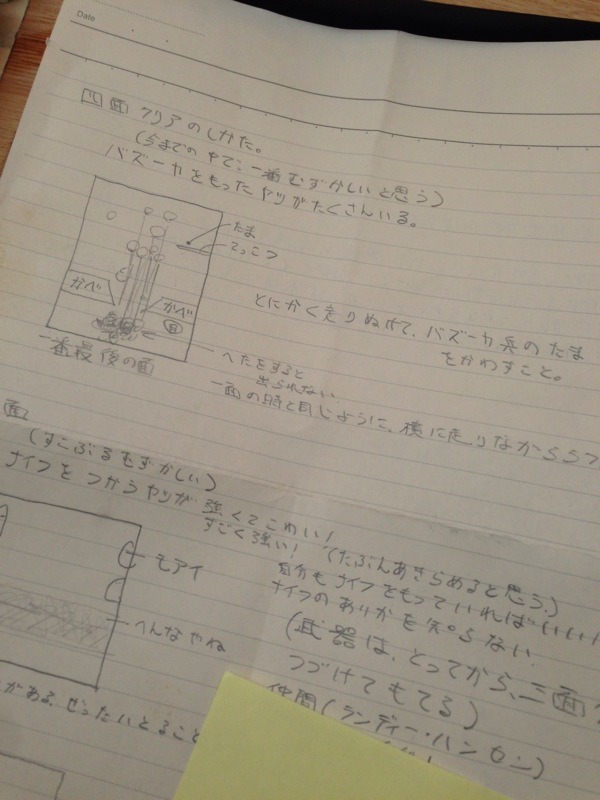 Date
クリアのしかた。
(今までの中で、一番むずかしいと思う)
バズーカをもったヤツがたくさんいる。
たま
てっこつ
かべ
かべ
とにかく走りぬけて、バズーカ兵のたま
をかわすこと。
一番最後の面
へたをすると
出られない
一面の時と同じように、横に走りながらうつ
面
(すこぶるむずかしい)
ナイフをつかうヤツが強くてこわい!
すごく強い!
(たぶんあきらめると思う。)
自分もナイフをもっていればいいい
ナイフのありかを知らない
モアイ
(武器は、とってから、三面
つづけてもてる)
へんなやね
がある。ぜったいとること
仲間(ランディー・ハンセン)